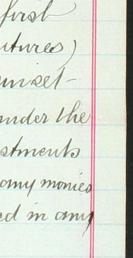 first
utures)
sunset-
under the
stments
any monies
ed in any